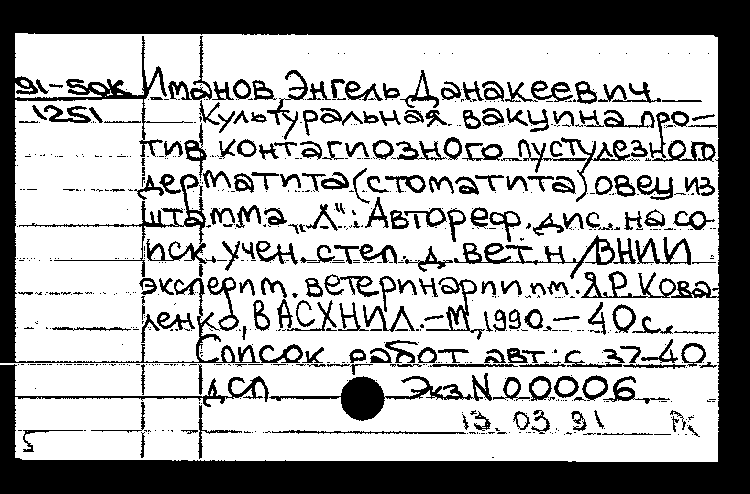 91-50К Иманов, Энгель Данакеевич.
1251 Культуральная вакцина про-
тив контагиозного пустулезного
дерматита (стоматита) овец из
штамма „Л“: Автореф. дис. на со-
иск. учен. степ. д. вет. н. /ВНИИ
эксперим. ветеринарии им. Я.Р. Кова-
ленко, ВАСХНИЛ.-М, 1990.-40с.
Список работ авт.: с 37-40.
ДСП. Экз.N00006.
13.03.91